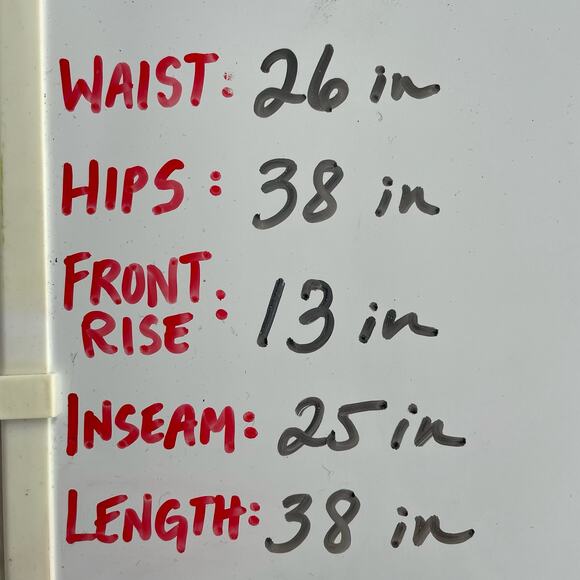 WAIST: 26 in
HIPS: 38 in
FRONT
RISE: 13 in
INSEAM: 25 in
LENGTH: 38 in